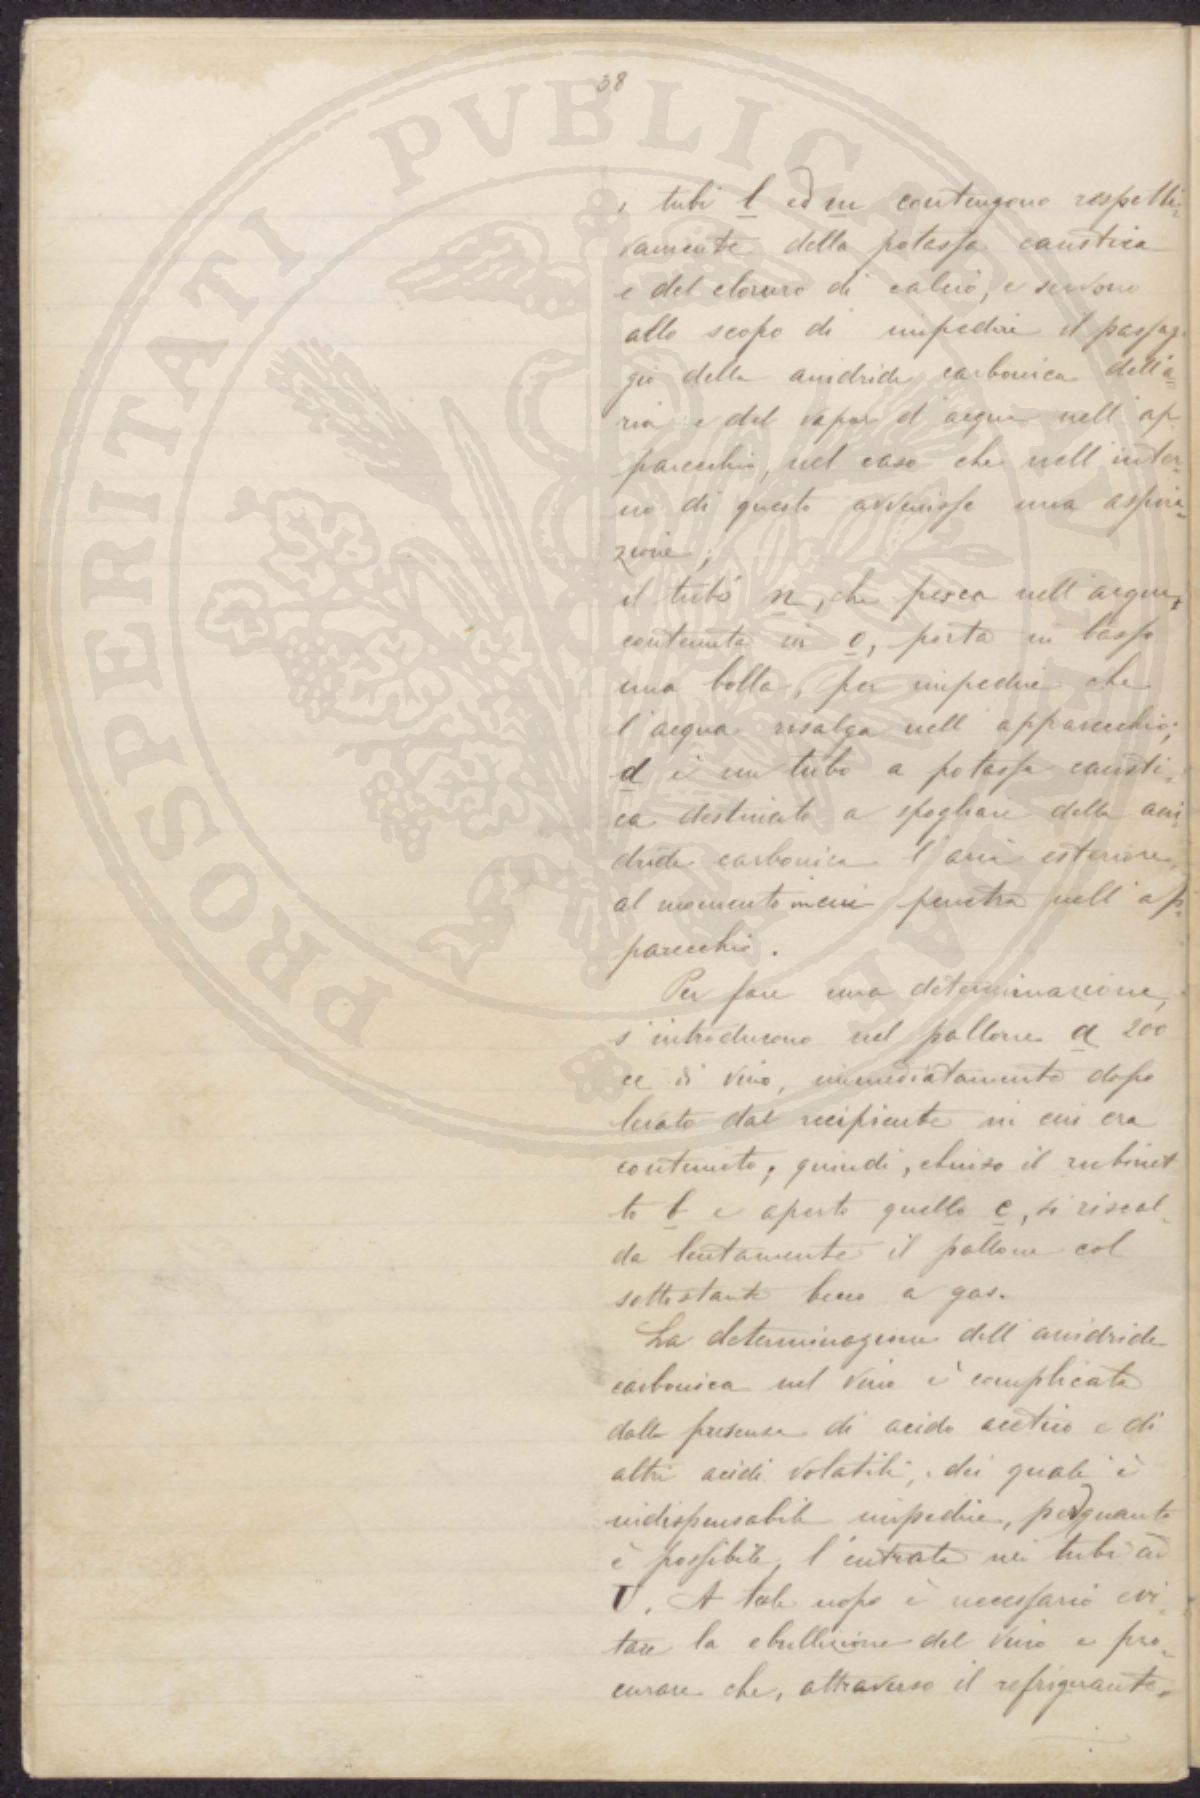 38
i tubi l ed m contengono rispetti-
vamente della potassa caustica
e del cloruro di calcio, e servono
allo scopo di impedire il passag-
gio della anidride carbonica dell'a-
ria e del vapor d'acqua nell'ap-
parecchio, nel caso che nell'inter-
no di questo avvenisse una aspira-
zione;
il tubo n, che pesca nell'acqua,
contenuta in o, porta in basso
una bolla, per impedire che
l'acqua risalga nell'apparecchio;
d è un tubo a potassa causti-
ca destinato a spogliare della ani-
dride carbonica l'aria esteriore,
al momento in cui penetra nell'ap-
parecchio.
Per fare una determinazione,
s'introducono nel pallone a 200
cc di vino, immediatamente dopo
levato dal recipiente in cui era
contenuto; quindi, chiuso il rubinet-
to b e aperto quello c, si riscal-
da lentamente il pallone col
sottostante becco a gas.
La determinazione dell'anidride
carbonica nel vino è complicata
dalla presenza di acido acetico e di
altri acidi volatili, dei quali è
indispensabile impedire, per quanto
è possibile, l'entrata nei tubi ad
U. A tale uopo è necessario evi-
tare la ebullizione del vino e pro-
curare che, attraverso il refrigerante,
PROSPERITATI PVBLICAE AVGENDAE